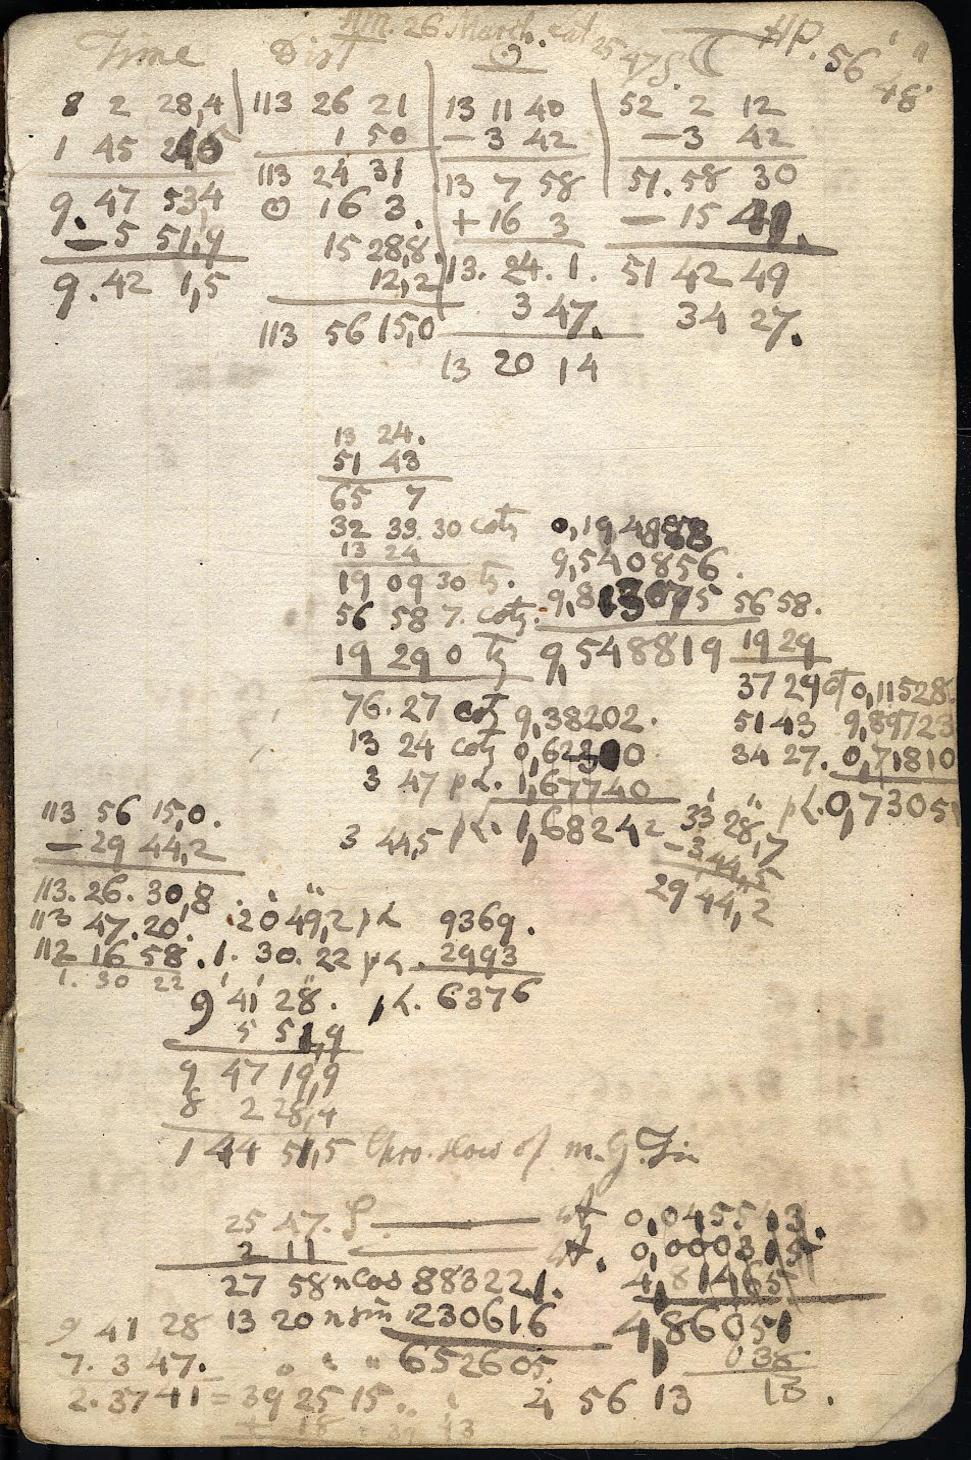 Am. 26 March. Lat 25 47 S. HP. 56 48"
Time Dist ☉ ☾
8 2 28,4 113 26 21 13 11 40 52 2 12
1 45 1 50 - 3 42 - 3 42
9. 47 53 4 113 24 31 13 7 58 51. 58 30
- 5 51,9 ☉ 16 3. + 16 3 - 15 41.
9. 42 1,5 15 28,8. 13. 24. 1. 51 42 49
12,2 3 47. 34 27.
113 56 15,0 13 20 14
13 24.
51 43
65 7
32 33. 30 0,19
13 24 9,540856.
19 09 30 9,8 5 56 58.
56 58 7. 9,548819 19 29
19 29 0 37 29 0,11528
76. 27 9,38202. 51 43 9,89723
13 24 0,62 0 34 27. 0,71810
3 47 pL. 1,67740 pL. 0,7305
3 44,5 pL. 1,68242 33' 28",7
113 56 15,0. - 3 44,5
- 29 44,2 29 44,2
113. 26. 30,8
113 47. 20. 20 49,2 pL 9369.
112 16 58. 1. 30. 22 pL. 2993
1. 30 22
9 41 28. pL. 6376
5 51,9
9 47 19,9
8 2 28,4
1 44 51,5 Chro. slow of m. G. Tim
25 47. 0,045513.
2 11 0,00031
27 58 n cos 883221. 4,81465
9 41 28 13 20 n sin 230616 4,86051
7. 3 47. ° ' " 652605. 038
2. 37 41 = 39 25 15. 4 56 13 13.
+ 18